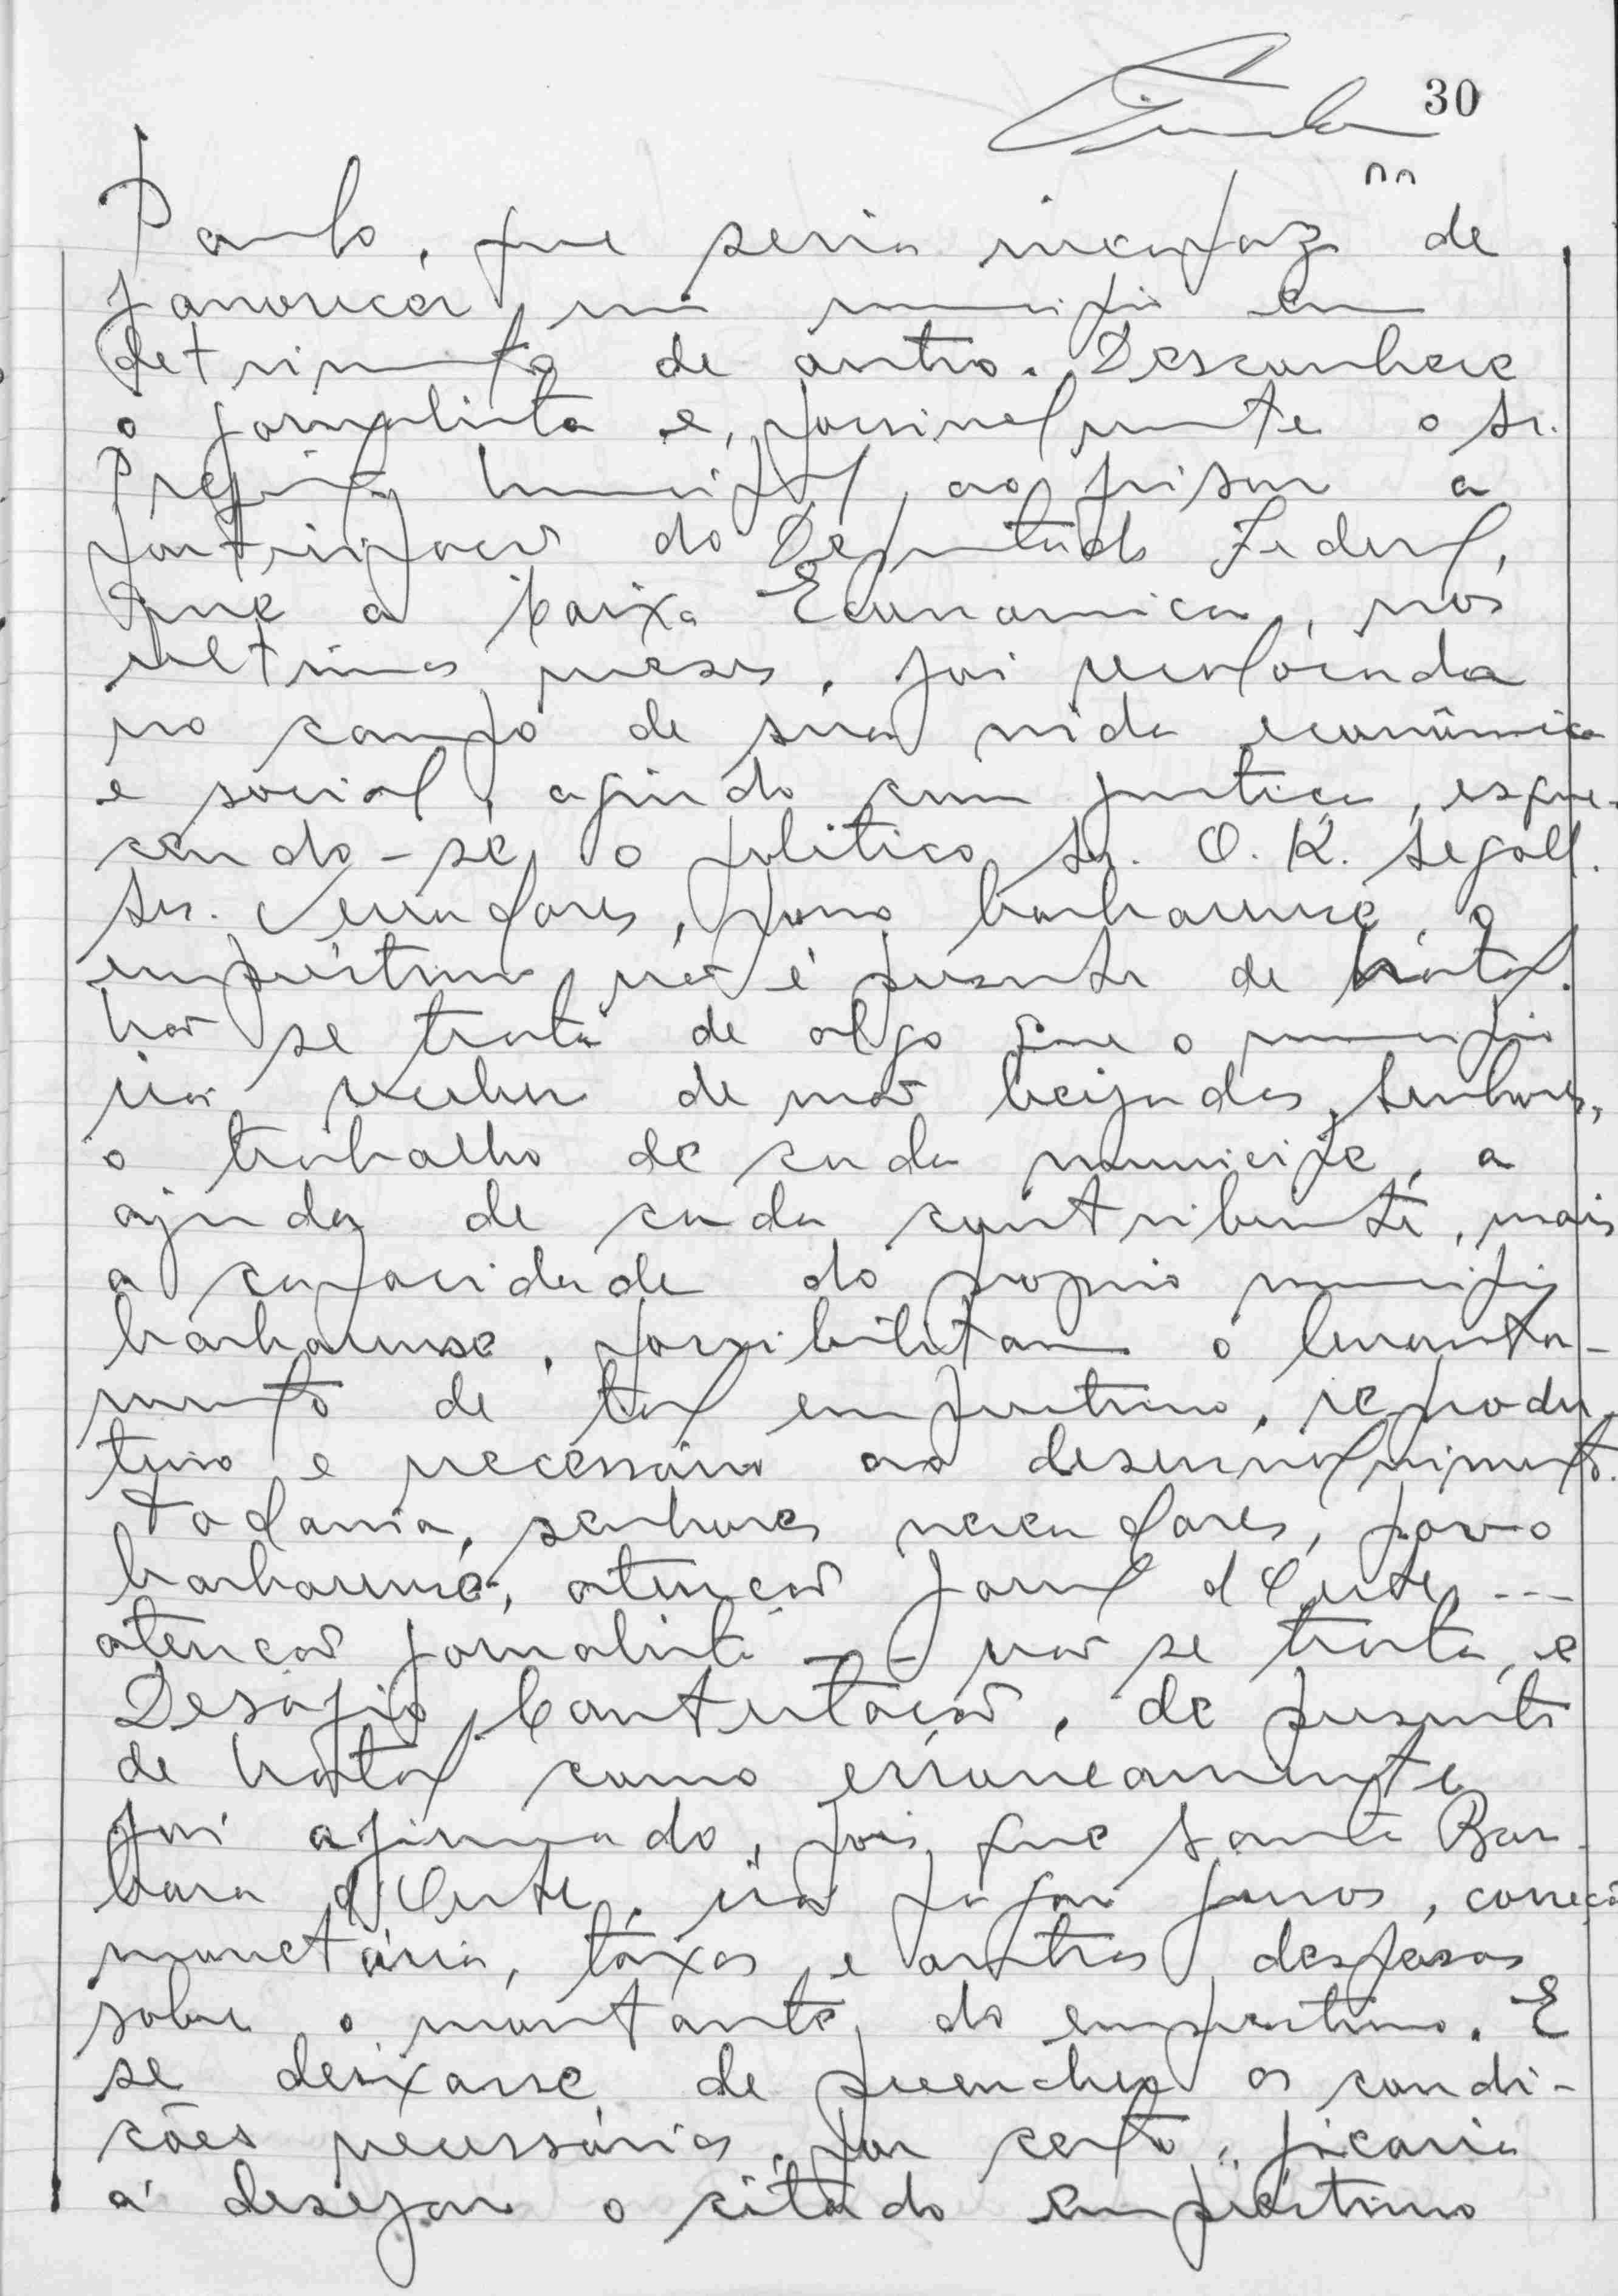 30
Paulo, que seria incapaz de
favorecer um municipio em
detrimento de outro. Desconhece
o jornalista e, possivelmente o sr.
Prefeito Municipal, ao frisar a
participação do Deputado Federal,
que a Caixa Economica, nos
ultimos meses, foi revolucionada
no campo de sua vida econômica
e social, agindo com justiça, esque-
cendo-se o politico sr. O. K. Segall.
Srs. Vereadores, povo barbarense, o
empréstimo não é presente de Natal.
Não se trata de algo que o municipio
irá receber de mão beijadas, senhores,
o trabalho de cada municipe, a
ajuda de cada contribuinte, mais
a capacidade do proprio municipio
barbarense, possibilitam o levanta-
mento de tal emprestimo, reprodu
tivo e necessário ao desenvolvimento.
Todavia, senhores vereadores, povo
barbarense, atenção Jornal d'Oeste, ---
atenção jornalista -- não se trata, e
Desafio Contestação, de presente
de Natal como erroneamente
foi afirmado, pois que Santa Bar-
bara d'Oeste, irá pagar juros, correção
monetária, taxas e outras despesas
sobre o montante do emprestimo. E
se deixasse de preencher as condi-
ções necessárias, por certo, ficaria
a desejar o citado empréstimo